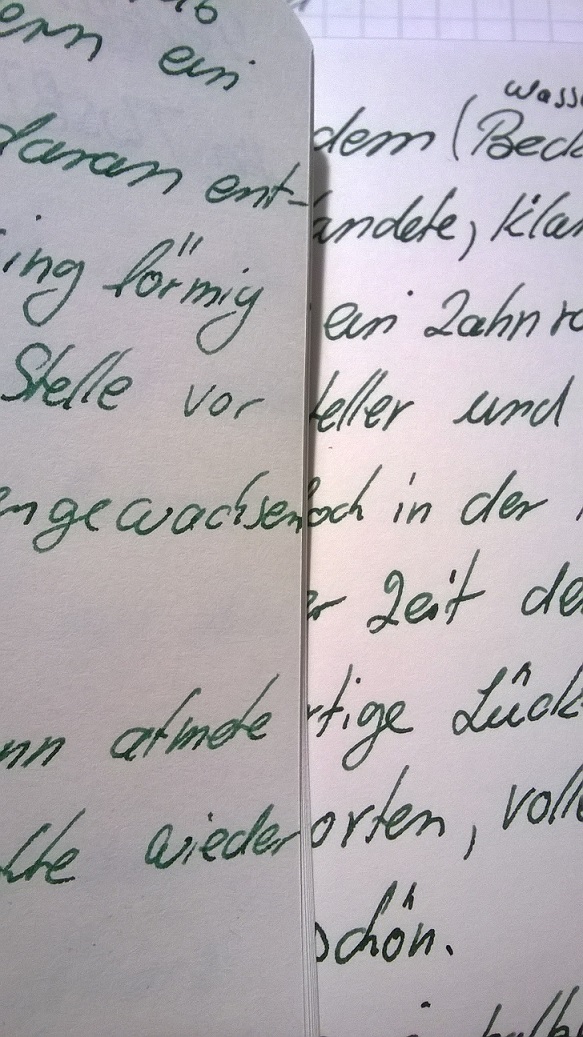 ein
daran ent-
förmig
Stelle vor
engewachsen
atmete
wieder
Wass
dem (Beck
andete, klar
ein Zahnr
teller und
och in der
Zeit de
rtige Lück
orten, voll
schön.